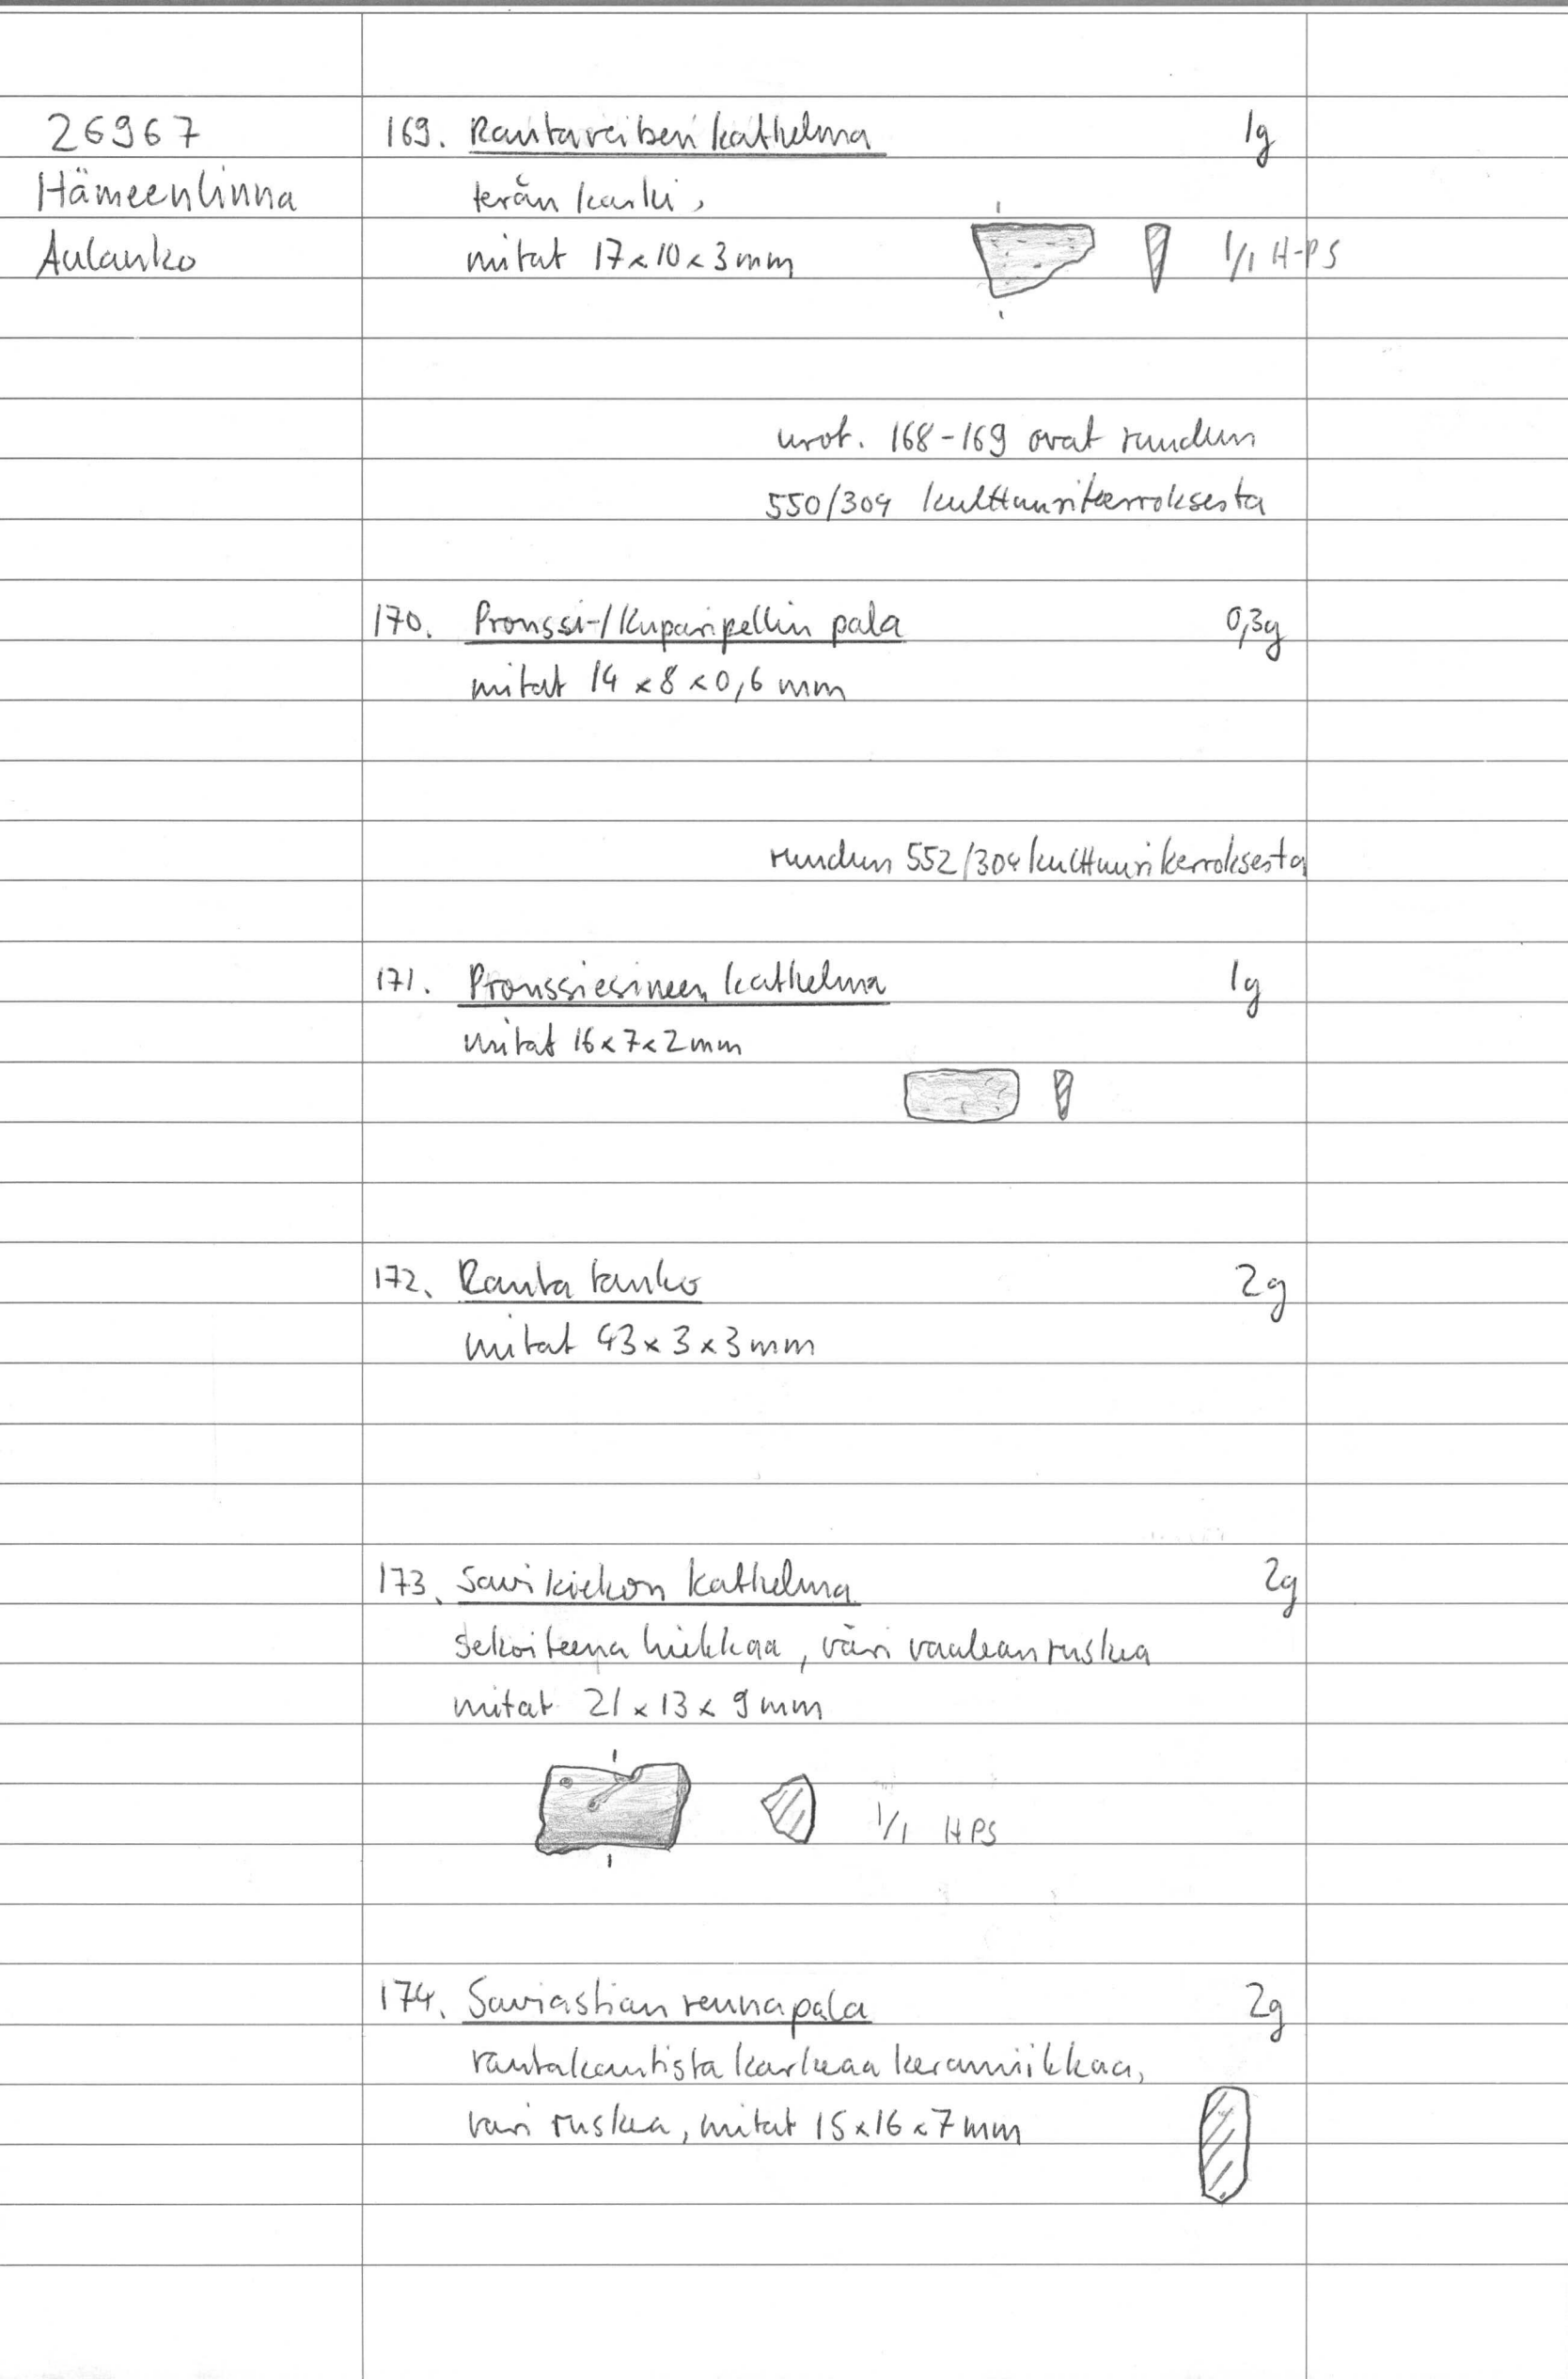 26967
Hämeenlinna
Aulanko
169. Rautaveitsen katkelma 1g
terän kärki,
mitat 17x10x3mm 1/1 H-PS
nrot. 168-169 ovat ruudun
550/304 kulttuurikerroksesta
170. Pronssi-/Kuparipellin pala 0,3g
mitat 14x8x0,6 mm
ruudun 552/304 kulttuurikerroksesta
171. Pronssiesineen katkelma 1g
mitat 16x7x2mm
172. Rautatanko 2g
mitat 43x3x3mm
173. Savikiekon katkelma 2g
sekoiteena hiekkaa, väri vaaleanruskea
mitat 21x13x9mm
1/1 HPS
174. Saviastian reunapala 2g
rautakautista karkeaa keramiikkaa,
väri ruskea, mitat 15x16x7mm